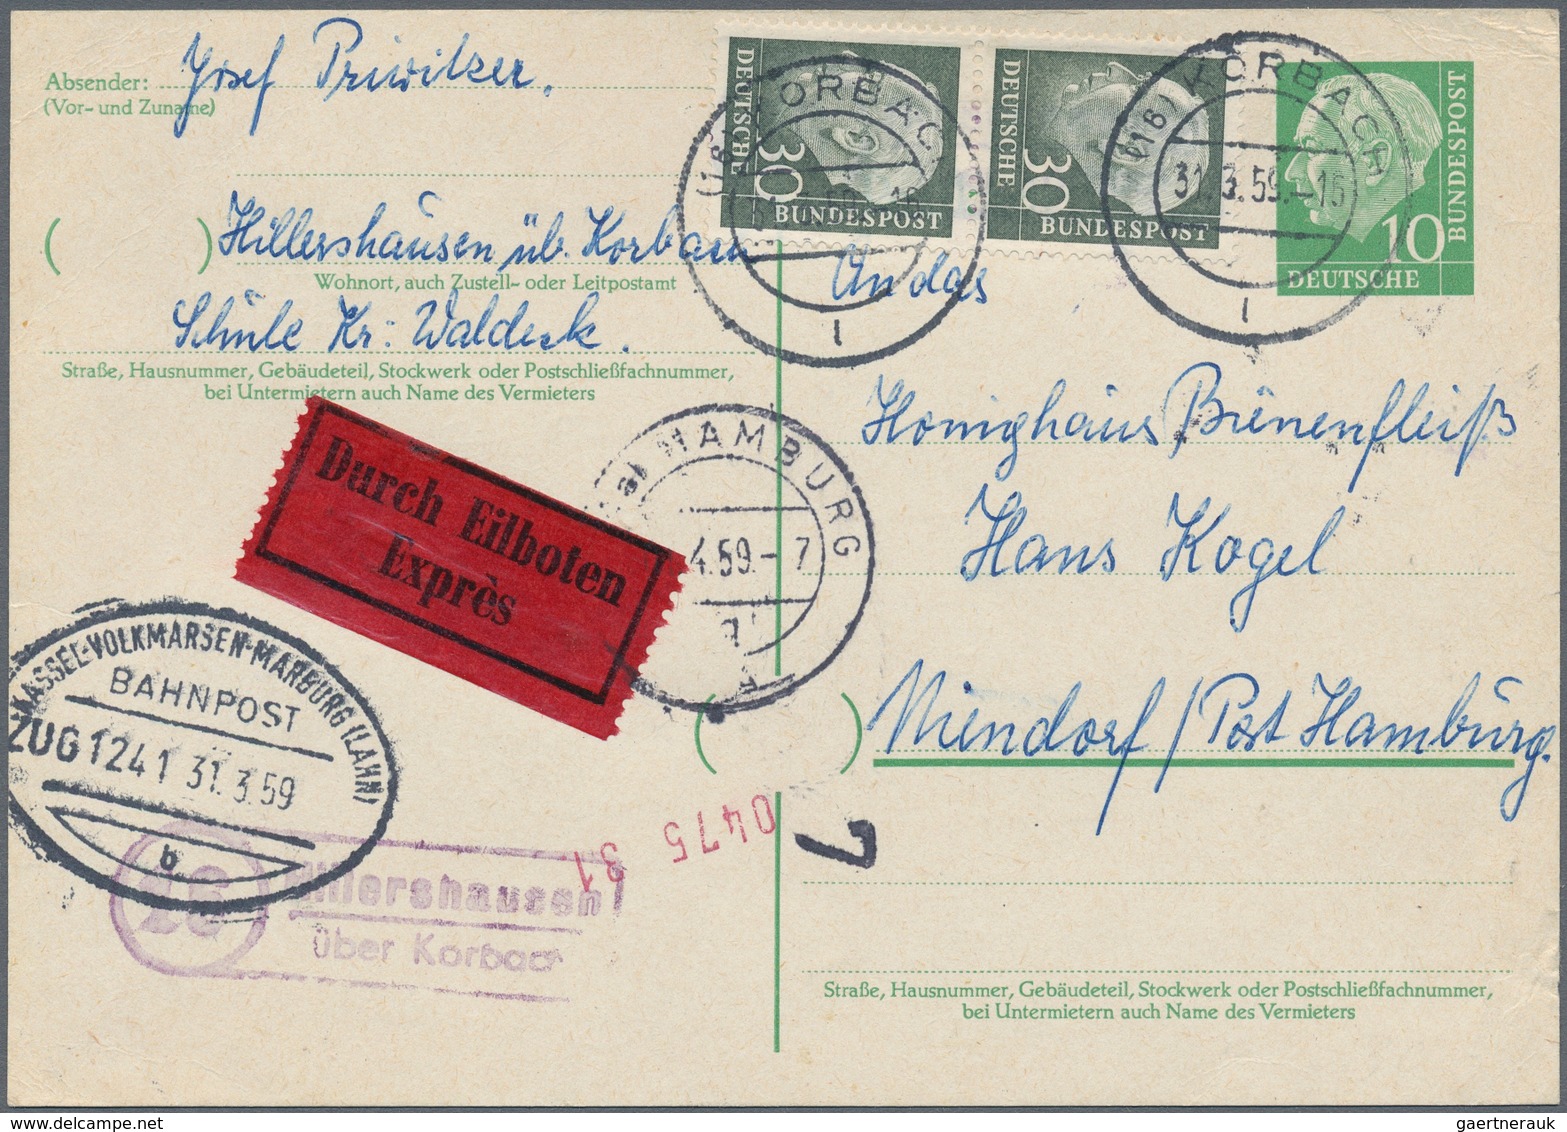 Absender: Josef Priwitzer.
(Vor- und Zuname)
( ) Hillershausen üb. Korbach
Wohnort, auch Zustell- oder Leitpostamt
Schule Kr: Waldeck.
Straße, Hausnummer, Gebäudeteil, Stockwerk oder Postschließfachnummer,
bei Untermietern auch Name des Vermieters
DEUTSCHE
30
BUNDESPOST
DEUTSCHE
30
BUNDESPOST
BUNDESPOST
10
DEUTSCHE
(16) KORBACH
31.3.59.-16
l
(16) KORBACH
31.3.59.-16
l
An das
Honighaus Bienenfleiß
Hans Kogel
Niendorf / Post Hamburg.
( )
Straße, Hausnummer, Gebäudeteil, Stockwerk oder Postschließfachnummer,
bei Untermietern auch Name des Vermieters
Durch Eilboten
Exprès
HAMBURG
4.59.-7
KASSEL-VOLKMARSEN-MARBURG (LAHN)
BAHNPOST
ZUG 1241 31.3.59
b
0475 31
7
16
Hillershausen
über Korbach
gaertnerauk